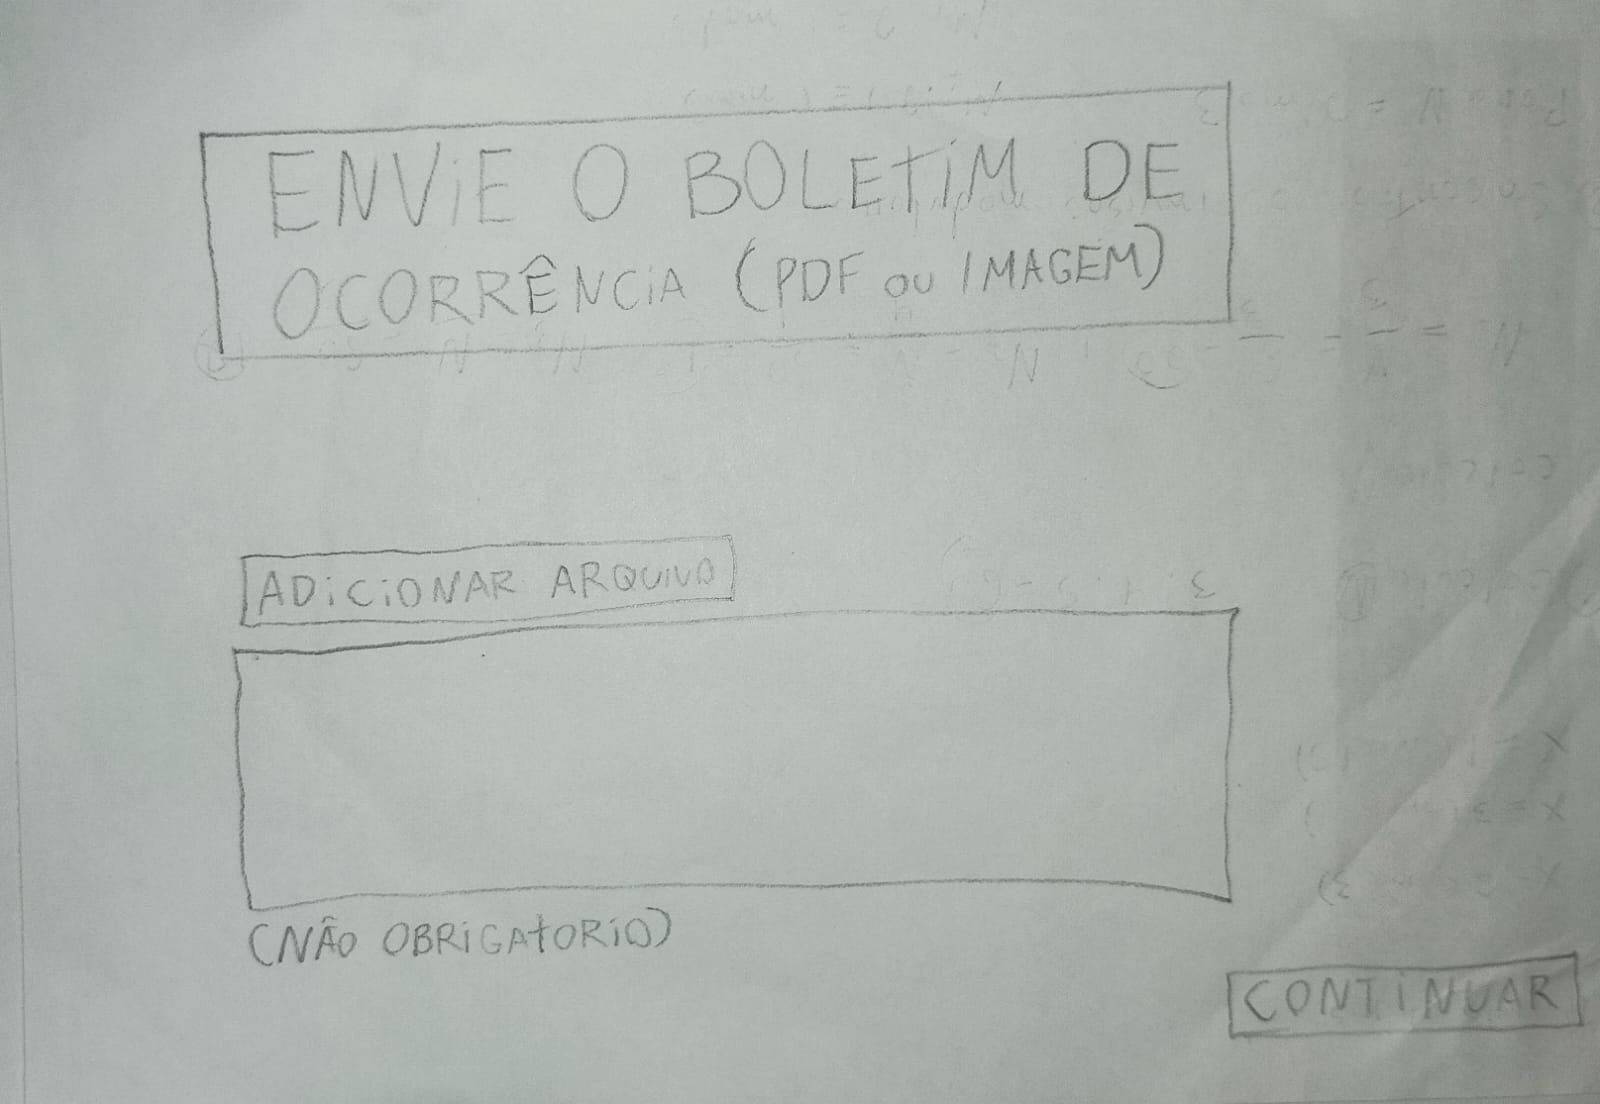 ENViE O BOLETiM DE
OCORRÊNCiA (PDF OU IMAGEM)
ADiCiONAR ARQUiVO
(NÃO OBRiGATORiO)
CONTiNUAR